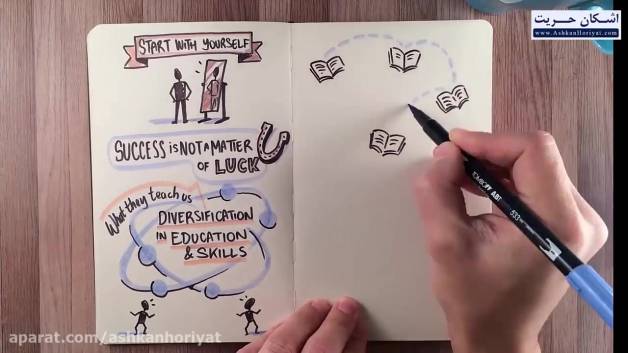 اشکان حریت
www.AshkanHoriyat.com
START WITH YOURSELF
SUCCESS iS NOT A MATTER
OF LUCK
What they teach us
DIVERSIFICATION
IN EDUCATION
& SKILLS
TOMBOW ABT
533
aparat.com/ashkanhoriyat